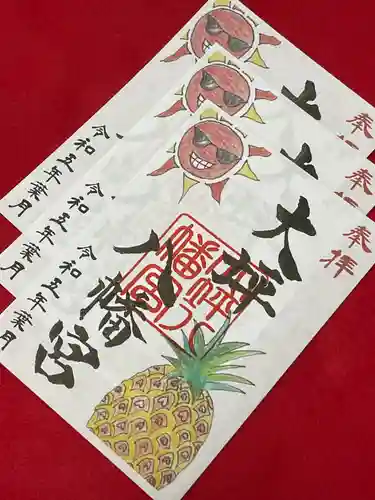 奉拝
大坪
八幡宮
令和五年葉月
奉拝
令和五年葉月
奉
令和五年葉月